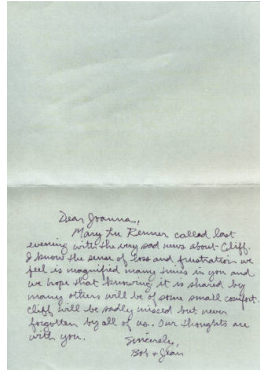 Dear Joanna,
Mary Lu Kenner called last
evening with the very sad news about Cliff.
I know the sense of loss and frustration we
feel is magnified many times in you and
we hope that knowing it is shared by
many others will be of some small comfort.
Cliff will be sadly missed but never
forgotten by all of us. Our thoughts are
with you.
Sincerely,
Bob & Jean